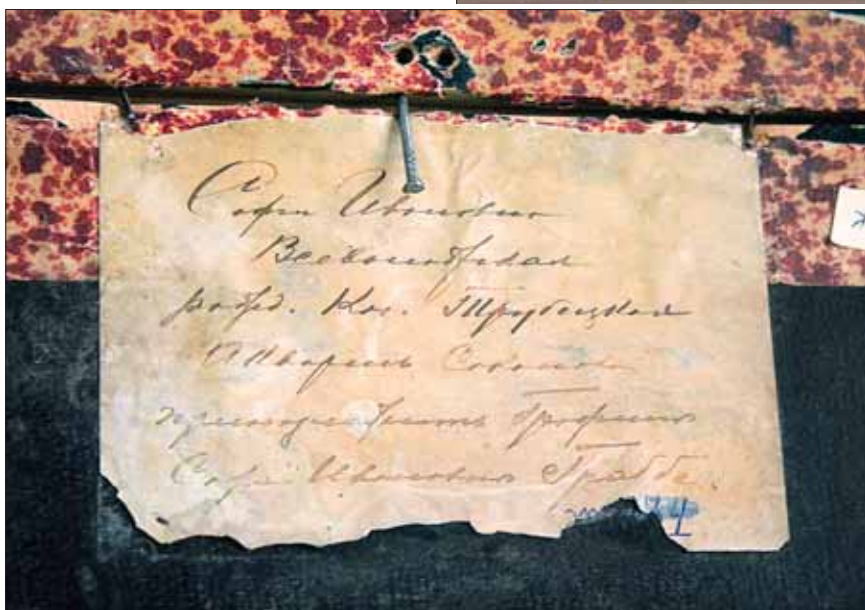 Софья Ивановна
Всеволожская
рожд. Кн. Трубецкая
Акварель Соколова
принадлежитъ Графинѣ
Софьѣ Ивановнѣ Граббе.